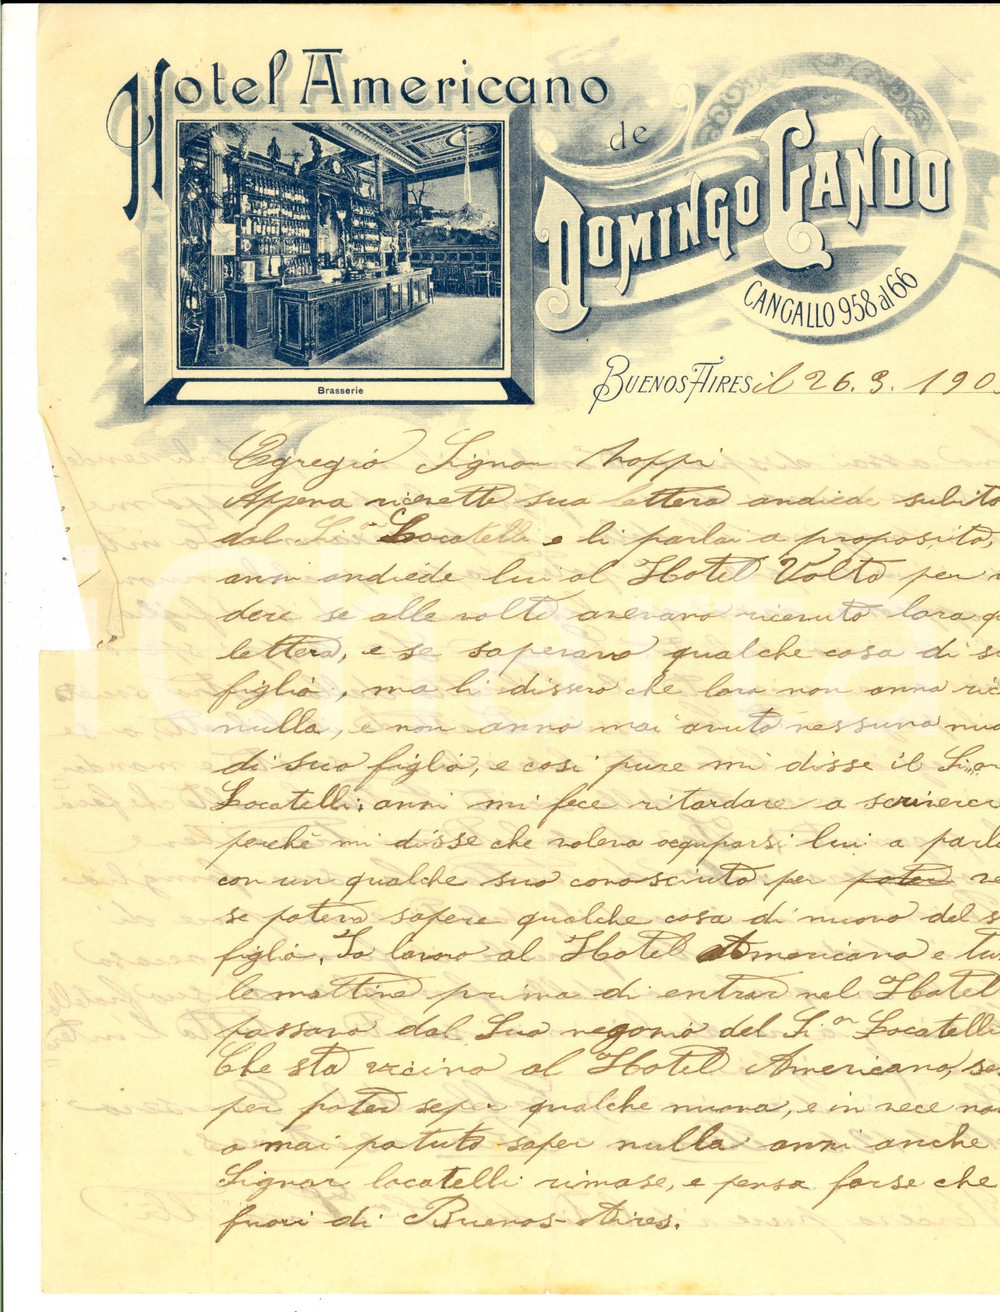 Hotel Americano
de
Domingo Gando
Cangallo 958 al 66
Brasserie
Buenos Aires il 26. 9. 190
Egregio Signor
Appena ricevette sua lettera andiede subito
dal Sior Locatelli e li parlai a proposito,
anni andiede lui al Hotel Volta per
dere se alle volte avevano ricevuto lora
lettera, e se sapevano qualche cosa di
figlio, ma li dissero che lora non anno
nulla, e non anno mai avuto nessuna
di suo figlio, e cosi pure mi disse il
Locatelli; anni mi fece ritardare a
perchè mi disse che voleva ocquparsi lui a
con un qualche suo conosciuto per poter
se poteva sapere qualche cosa di nuovo del
figlio, Io lavoro al Hotel Americano e
le mattine prima di entrar nel Hotel
passavo dal Suo negonio del Sior Locatelli
Che sta vicino al Hotel Americano,
per poter seper qualche nuova, e in vece
o mai potuto saper nulla anni anche
Signor locatelli rimase, e pensa forse che
fuori di Buenos-Aires.